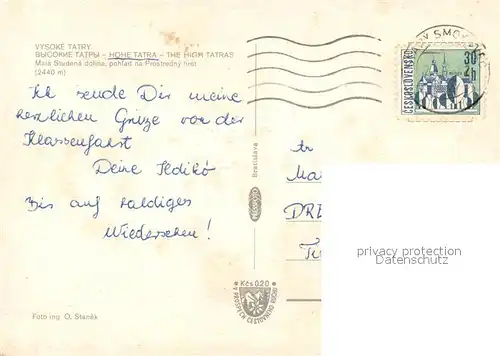 VYSOKÉ TATRY
ВЫСОКИЕ ТАТРЫ – HOHE TATRA – THE HIGH TATRAS
Malá Studená dolina, pohľad na Prostredný hrot
(2440 m)
Ich sende Dir meine
herzlichen Grüze von der
Klassenfahrt
Deine Ildikó
Bis auf baldiges
Wiedersehen!
Foto ing. O. Staněk
Bratislava
PRESSFOTO
Kčs 0,20
V PROSPĚCH CESTOVNÍHO RUCHU
SMOK
ČESKOSLOVENSKO
30
h
An
Ma
DRE
privacy protection
Datenschutz